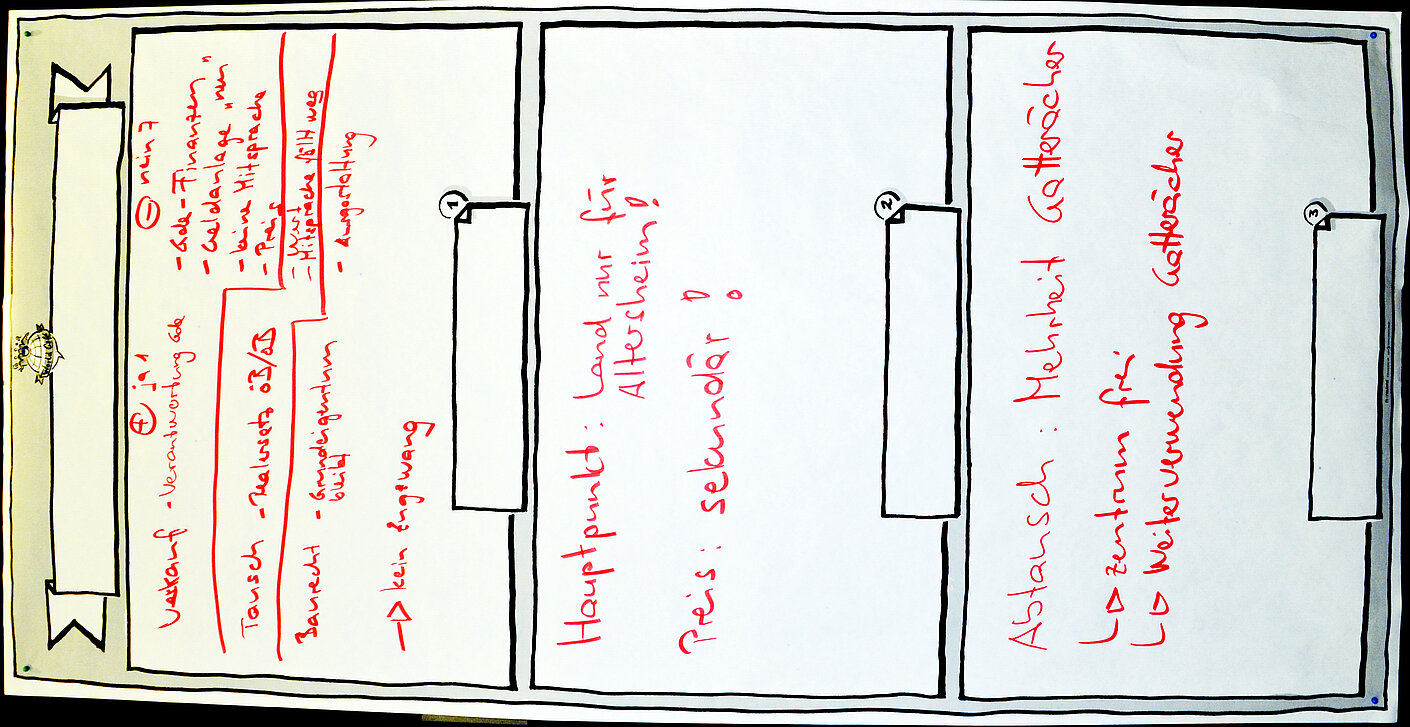 ⊕ ja 1
⊖ nein 7
Verkauf - Verantwortung Gde
- Gde-Finanzen
- Geldanlage "nun"
- keine Mitsprache
- Preis
Tausch - Realersatz öB/öB
- Wert
Baurecht - Grundeigentum bleibt
- Mitsprache fällt weg
- Ausgestaltung
→ kein Zugzwang
1
Hauptpunkt: Land nur für
Altersheim!
Preis: sekundär!
2
Abtausch: Mehrheit Gatterächer
↳ Zentrum frei
↳ Weiterverwendung Gatterächer
3